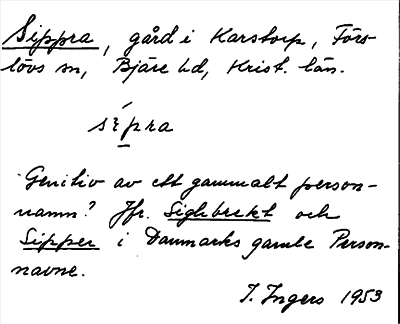 Sippra, gård i Karstorp, Förs-
lövs sn, Bjäre hd, Krist. län.
sìpra
Genitiv av ett gammalt person-
namn? Jfr. Sighbrekt och
Sipper i Danmarks gamle Person-
navne.
I. Ingers 1953